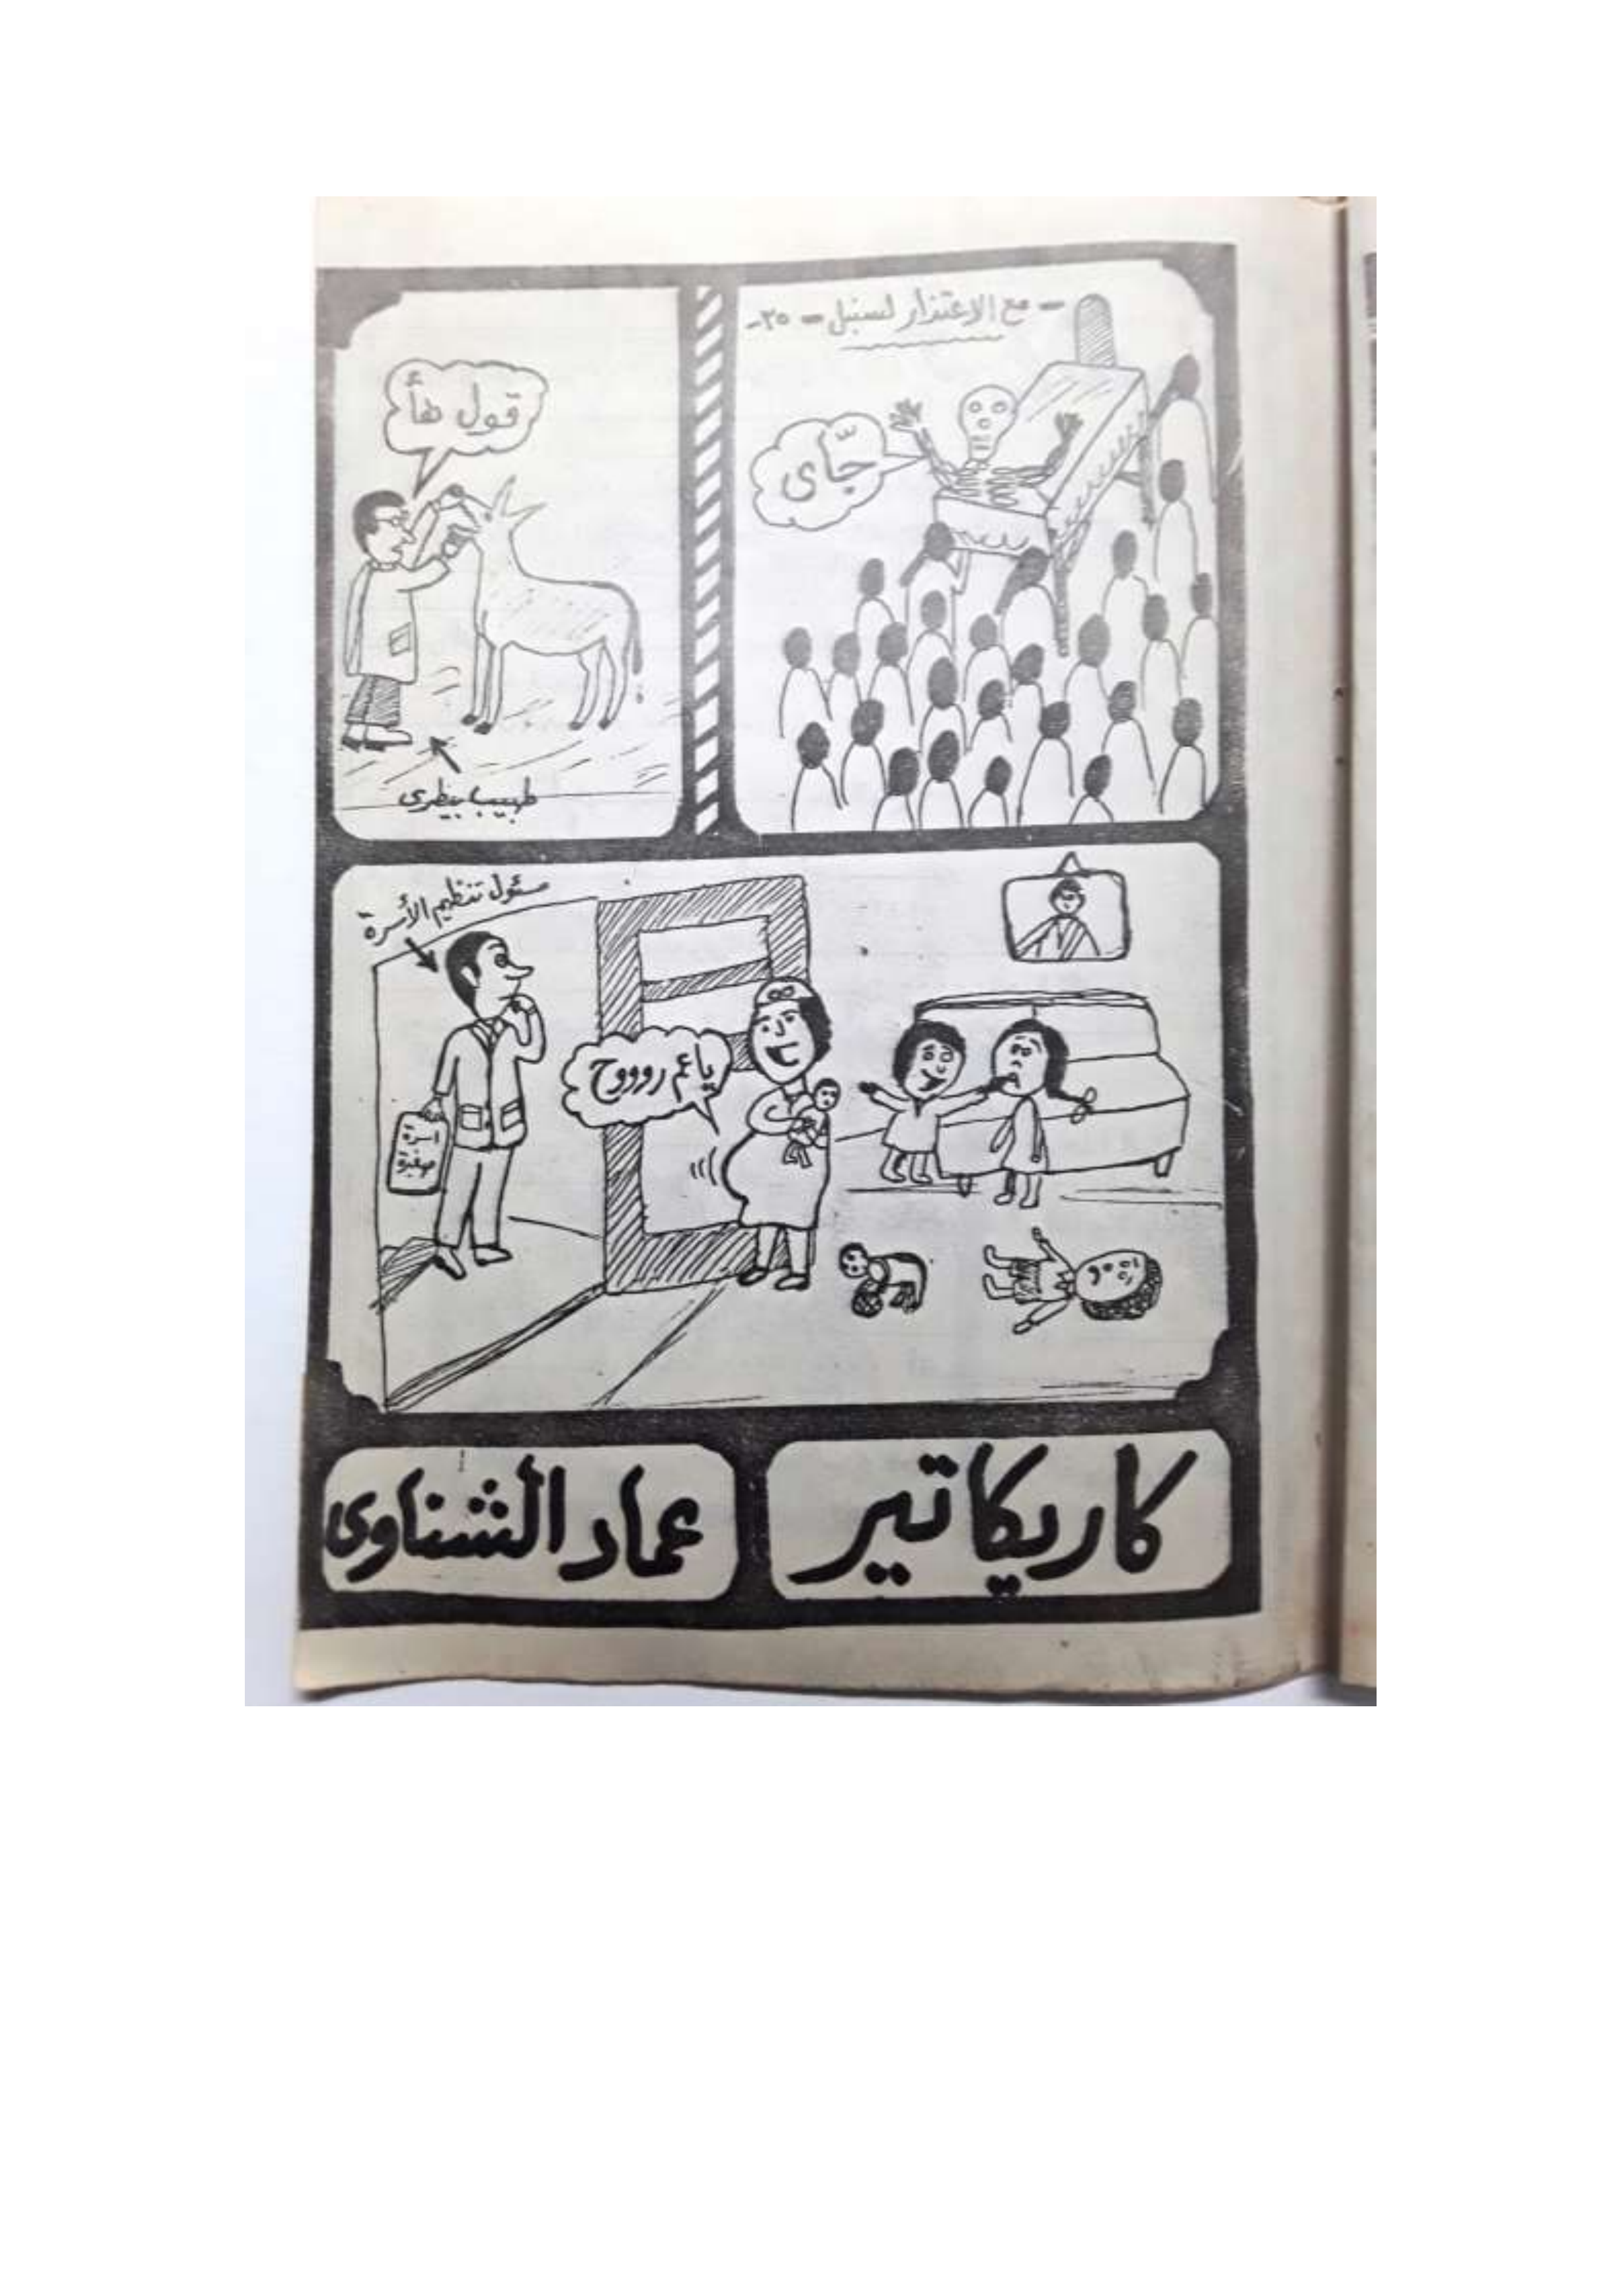 - مع الاعتذار لسنبل - ٢٥-
جّاى
قول هأ
طبيب بيطرى
مسئول تنظيم الأسرة
ياعم روووح
اسرة
صغيرة
كاريكاتير
عماد الشناوى